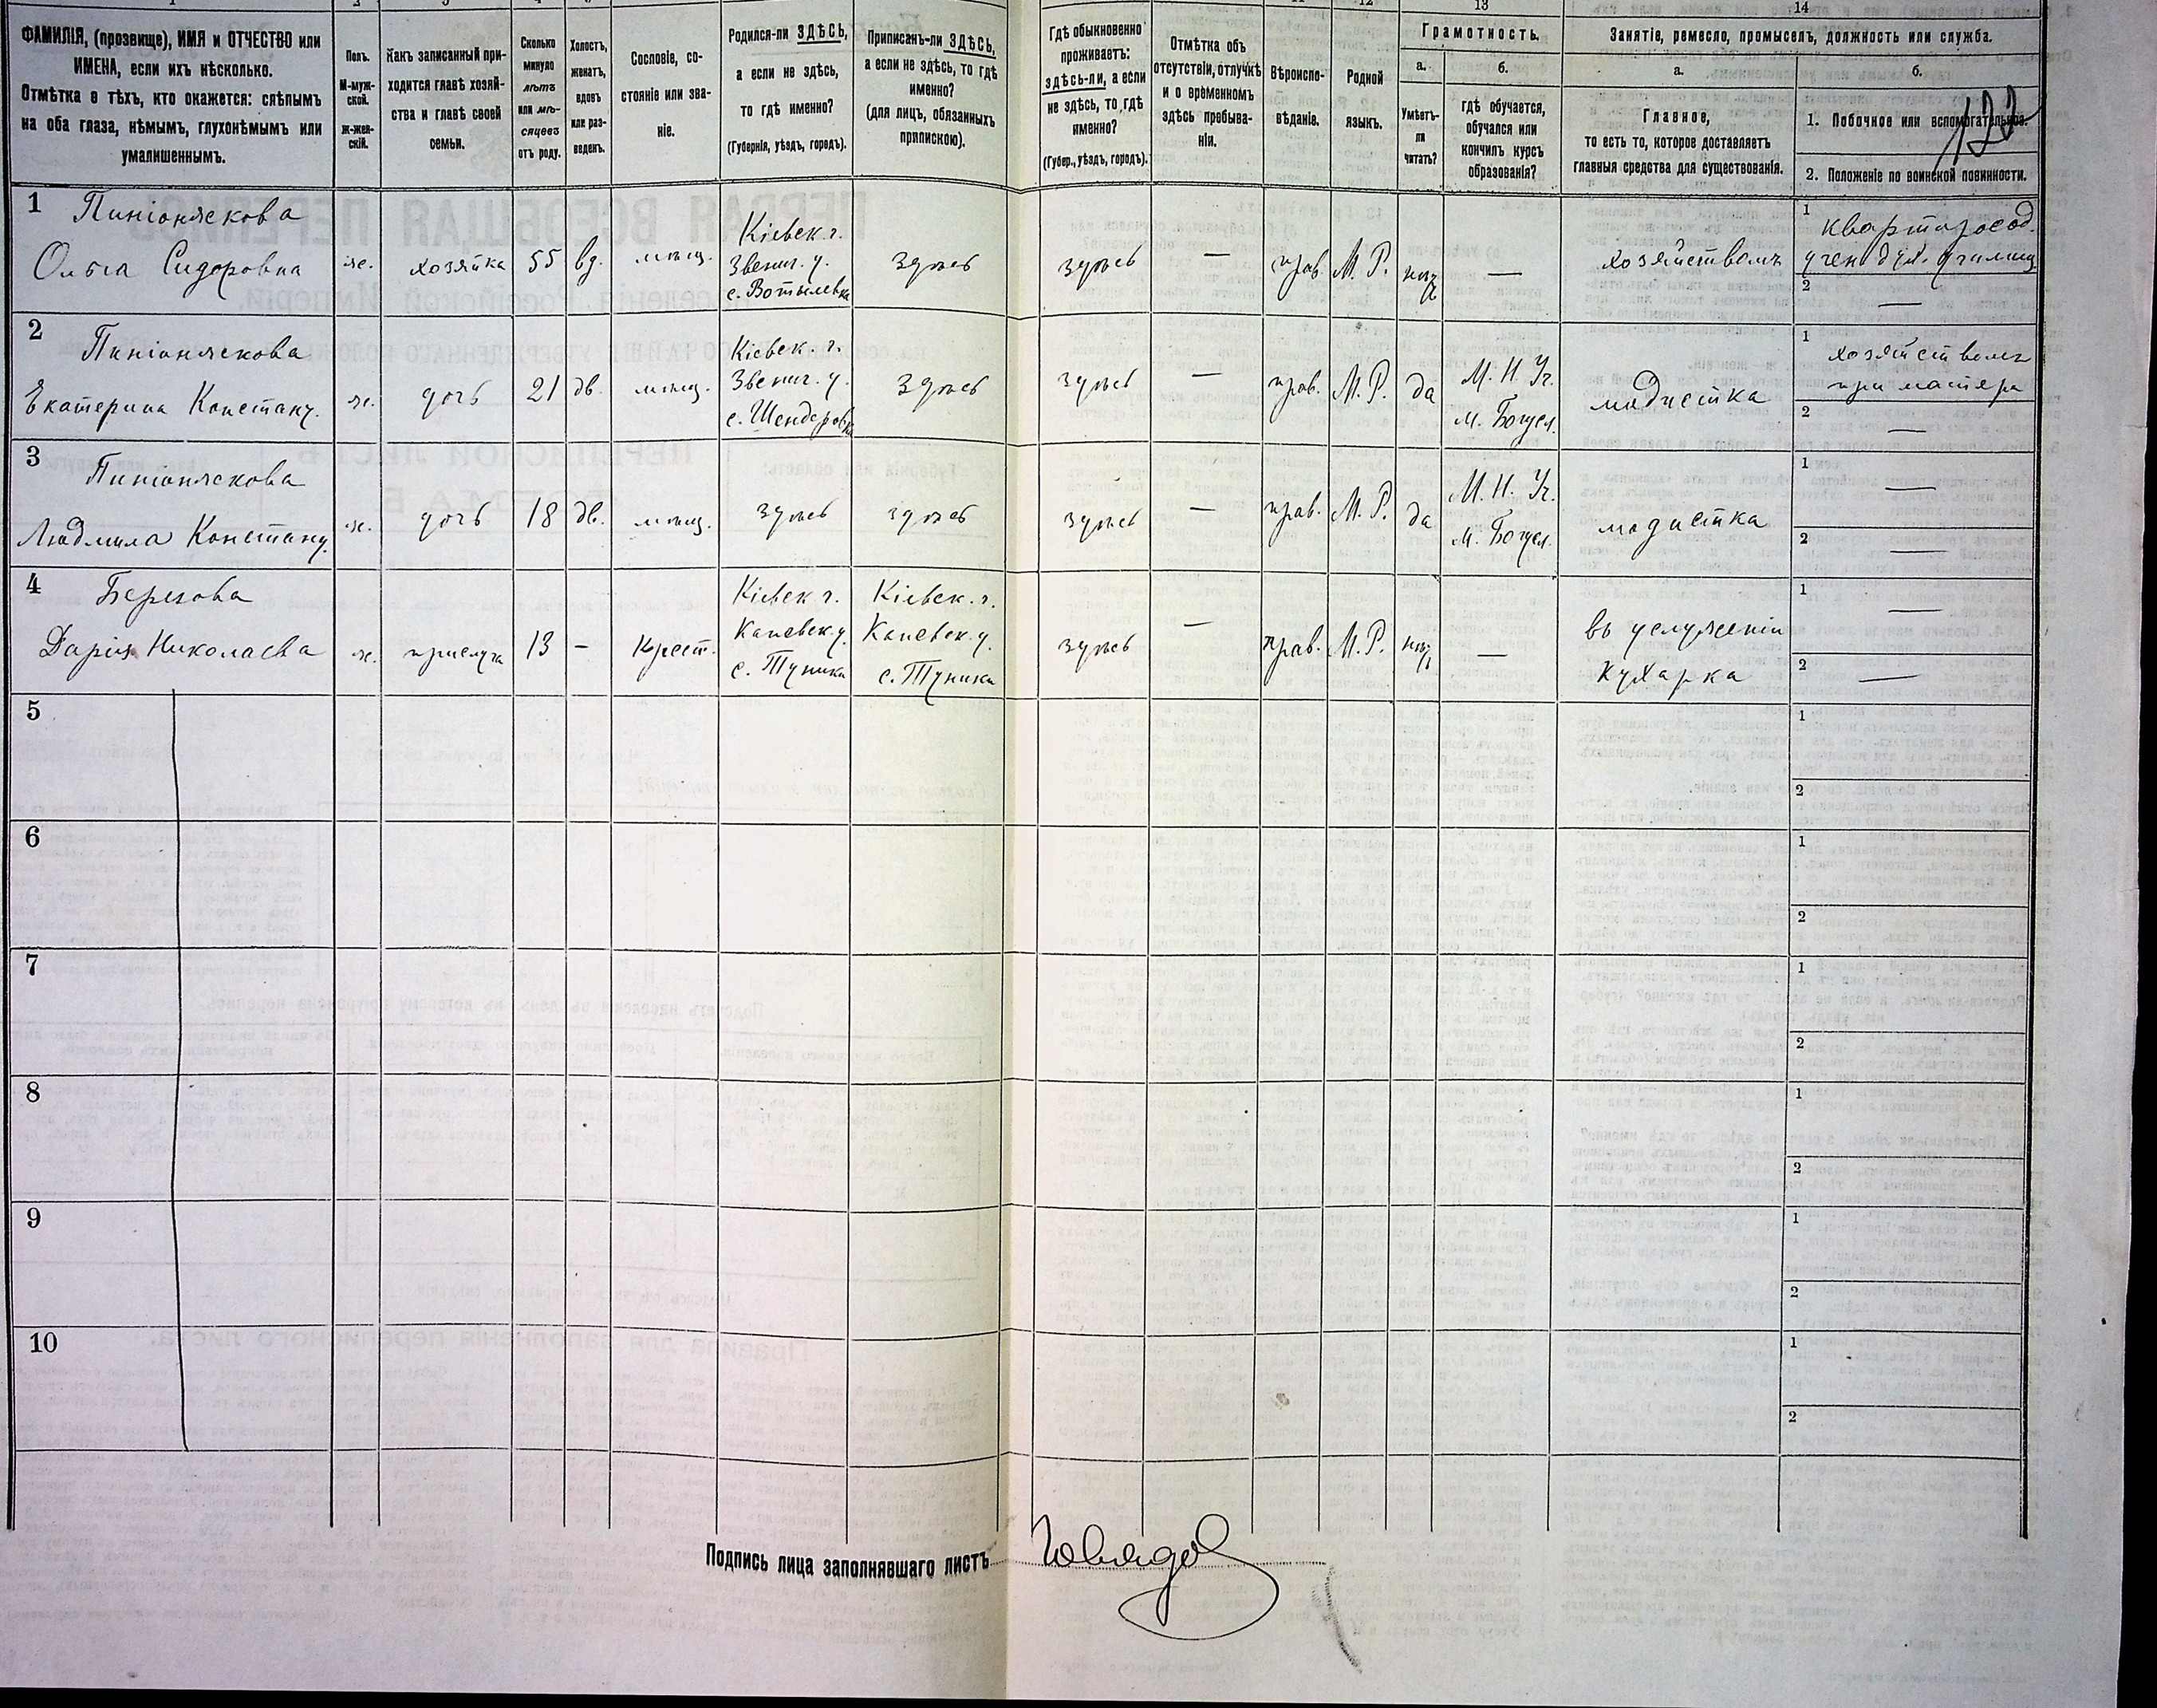 13
14
ФАМИЛІЯ, (прозвище), ИМЯ и ОТЧЕСТВО или
ИМЕНА, если ихъ нѣсколько.
Отмѣтка о тѣхъ, кто окажется: слѣпымъ
на оба глаза, нѣмымъ, глухонѣмымъ или
умалишеннымъ.
Полъ.
М-муж-
ской.
Ж-жен-
скій.
Какъ записанный при-
ходится главѣ хозяй-
ства и главѣ своей
семьи.
Сколько
минуло
лѣтъ
или мѣ-
сяцевъ
отъ роду.
Холостъ,
женатъ,
вдовъ
или раз-
веденъ.
Сословіе, со-
стояніе или зва-
ніе.
Родился-ли ЗДѢСЬ,
а если не здѣсь,
то гдѣ именно?
(Губернія, уѣздъ, городъ).
Приписанъ-ли ЗДѢСЬ,
а если не здѣсь, то гдѣ
именно?
(для лицъ, обязанныхъ
припискою).
Гдѣ обыкновенно
проживаетъ:
здѣсь-ли, а если
не здѣсь, то гдѣ
именно?
(Губер., уѣздъ, городъ).
Отмѣтка объ
отсутствіи, отлучкѣ
и о временномъ
здѣсь пребыва-
ніи.
Вѣроиспо-
вѣданіе.
Родной
языкъ.
Грамотность.
а.
Умѣетъ-
ли
читать?
б.
гдѣ обучается,
обучался или
кончилъ курсъ
образованія?
Занятіе, ремесло, промыселъ, должность или служба.
а.
Главное,
то есть то, которое доставляетъ
главныя средства для существованія.
б.
1. Побочное или вспомогательное.
2. Положеніе по воинской повинности.
1
Ольга Сидоровна
ж.
хозяйка
55
вд.
мѣщ.
Кіевск. г.
Звениг. у.
с. Вотылевка
здѣсь
здѣсь
—
прав.
М. Р.
нѣтъ
—
хозяйствомъ
1
2
—
2
Екатерина Констант.
ж.
дочь
21
дв.
мѣщ.
Кіевск. г.
Звениг. у.
с. Шендеровка
здѣсь
здѣсь
—
прав.
М. Р.
да
М. Н. Уч.
м. Богусл.
модистка
1
хозяйствомъ
при матери
2
—
3
Людмила Констант.
ж.
дочь
18
дв.
мѣщ.
здѣсь
здѣсь
здѣсь
—
прав.
М. Р.
да
М. Н. Уч.
м. Богусл.
модистка
1
—
2
—
4
Дарія Николаева
ж.
прислуга
13
—
Крест.
Кіевск. г.
Каневск. у.
с. Туники
Кіевск. г.
Каневск. у.
с. Туники
здѣсь
—
прав.
М. Р.
нѣтъ
—
въ услуженіи
кухарка
1
—
2
—
5
1
2
6
1
2
7
1
2
8
1
2
9
1
2
10
1
2
Подпись лица заполнявшаго листъ